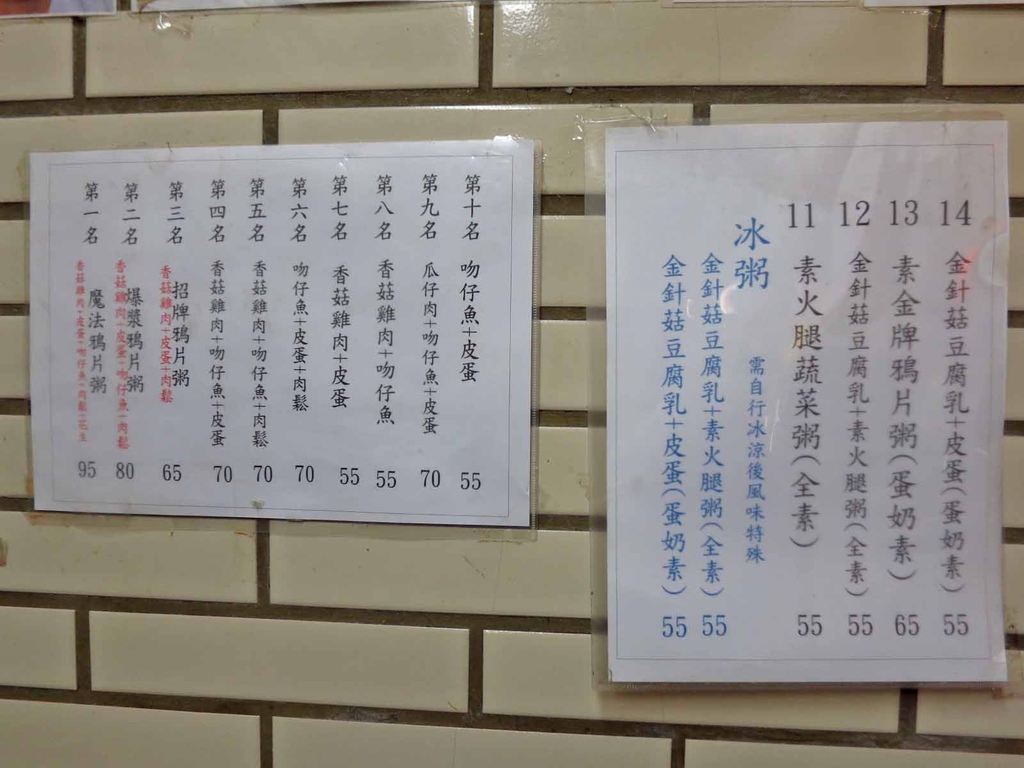 第一名 魔法鴉片粥 95
香菇雞肉+皮蛋+吻仔魚+肉鬆+花生
第二名 爆漿鴉片粥 80
香菇雞肉+皮蛋+吻仔魚+肉鬆
第三名 招牌鴉片粥 65
香菇雞肉+皮蛋+肉鬆
第四名 香菇雞肉+吻仔魚+皮蛋 70
第五名 香菇雞肉+吻仔魚+肉鬆 70
第六名 吻仔魚+皮蛋+肉鬆 70
第七名 香菇雞肉+皮蛋 55
第八名 香菇雞肉+吻仔魚 55
第九名 瓜仔肉+吻仔魚+皮蛋 70
第十名 吻仔魚+皮蛋 55
14 金針菇豆腐乳+皮蛋(蛋奶素) 55
13 素金牌鴉片粥(蛋奶素) 65
12 金針菇豆腐乳+素火腿粥(全素) 55
11 素火腿蔬菜粥(全素) 55
冰粥 需自行冰涼後風味特殊
金針菇豆腐乳+素火腿粥(全素) 55
金針菇豆腐乳+皮蛋(蛋奶素) 55